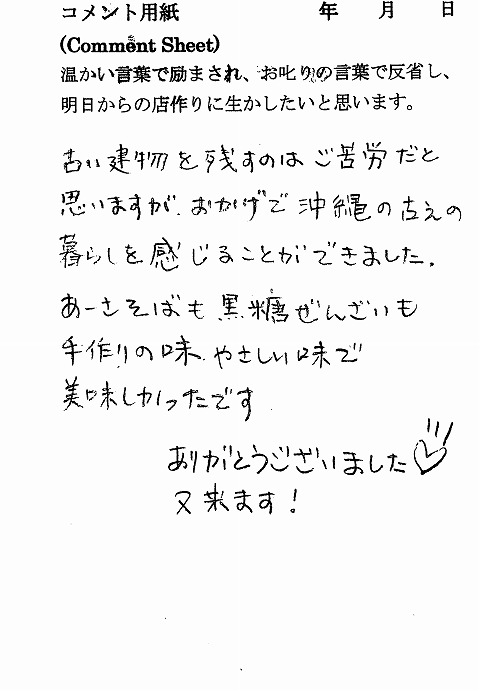 コメント用紙 年 月 日
(Comment Sheet)
温かい言葉で励まされ、お叱りの言葉で反省し、
明日からの店作りに生かしたいと思います。
古い建物を残すのはご苦労だと
思いますが、おかげで沖縄の古えの
暮らしを感じることができました。
あーさそばも黒糖ぜんざいも
手作りの味、やさしい味で
美味しかったです
ありがとうございました♡
又来ます!